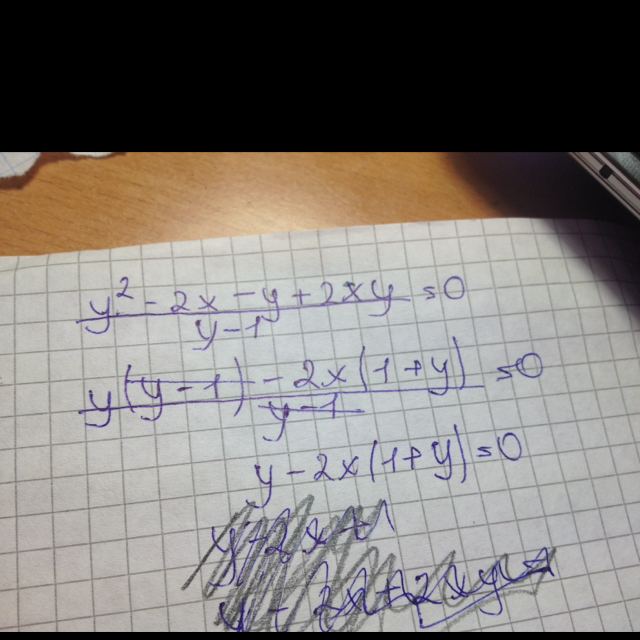 y² - 2x - y + 2xy = 0
y - 1
y(y - 1) - 2x(1 + y) = 0
y - 1
y - 2x(1 + y) = 0